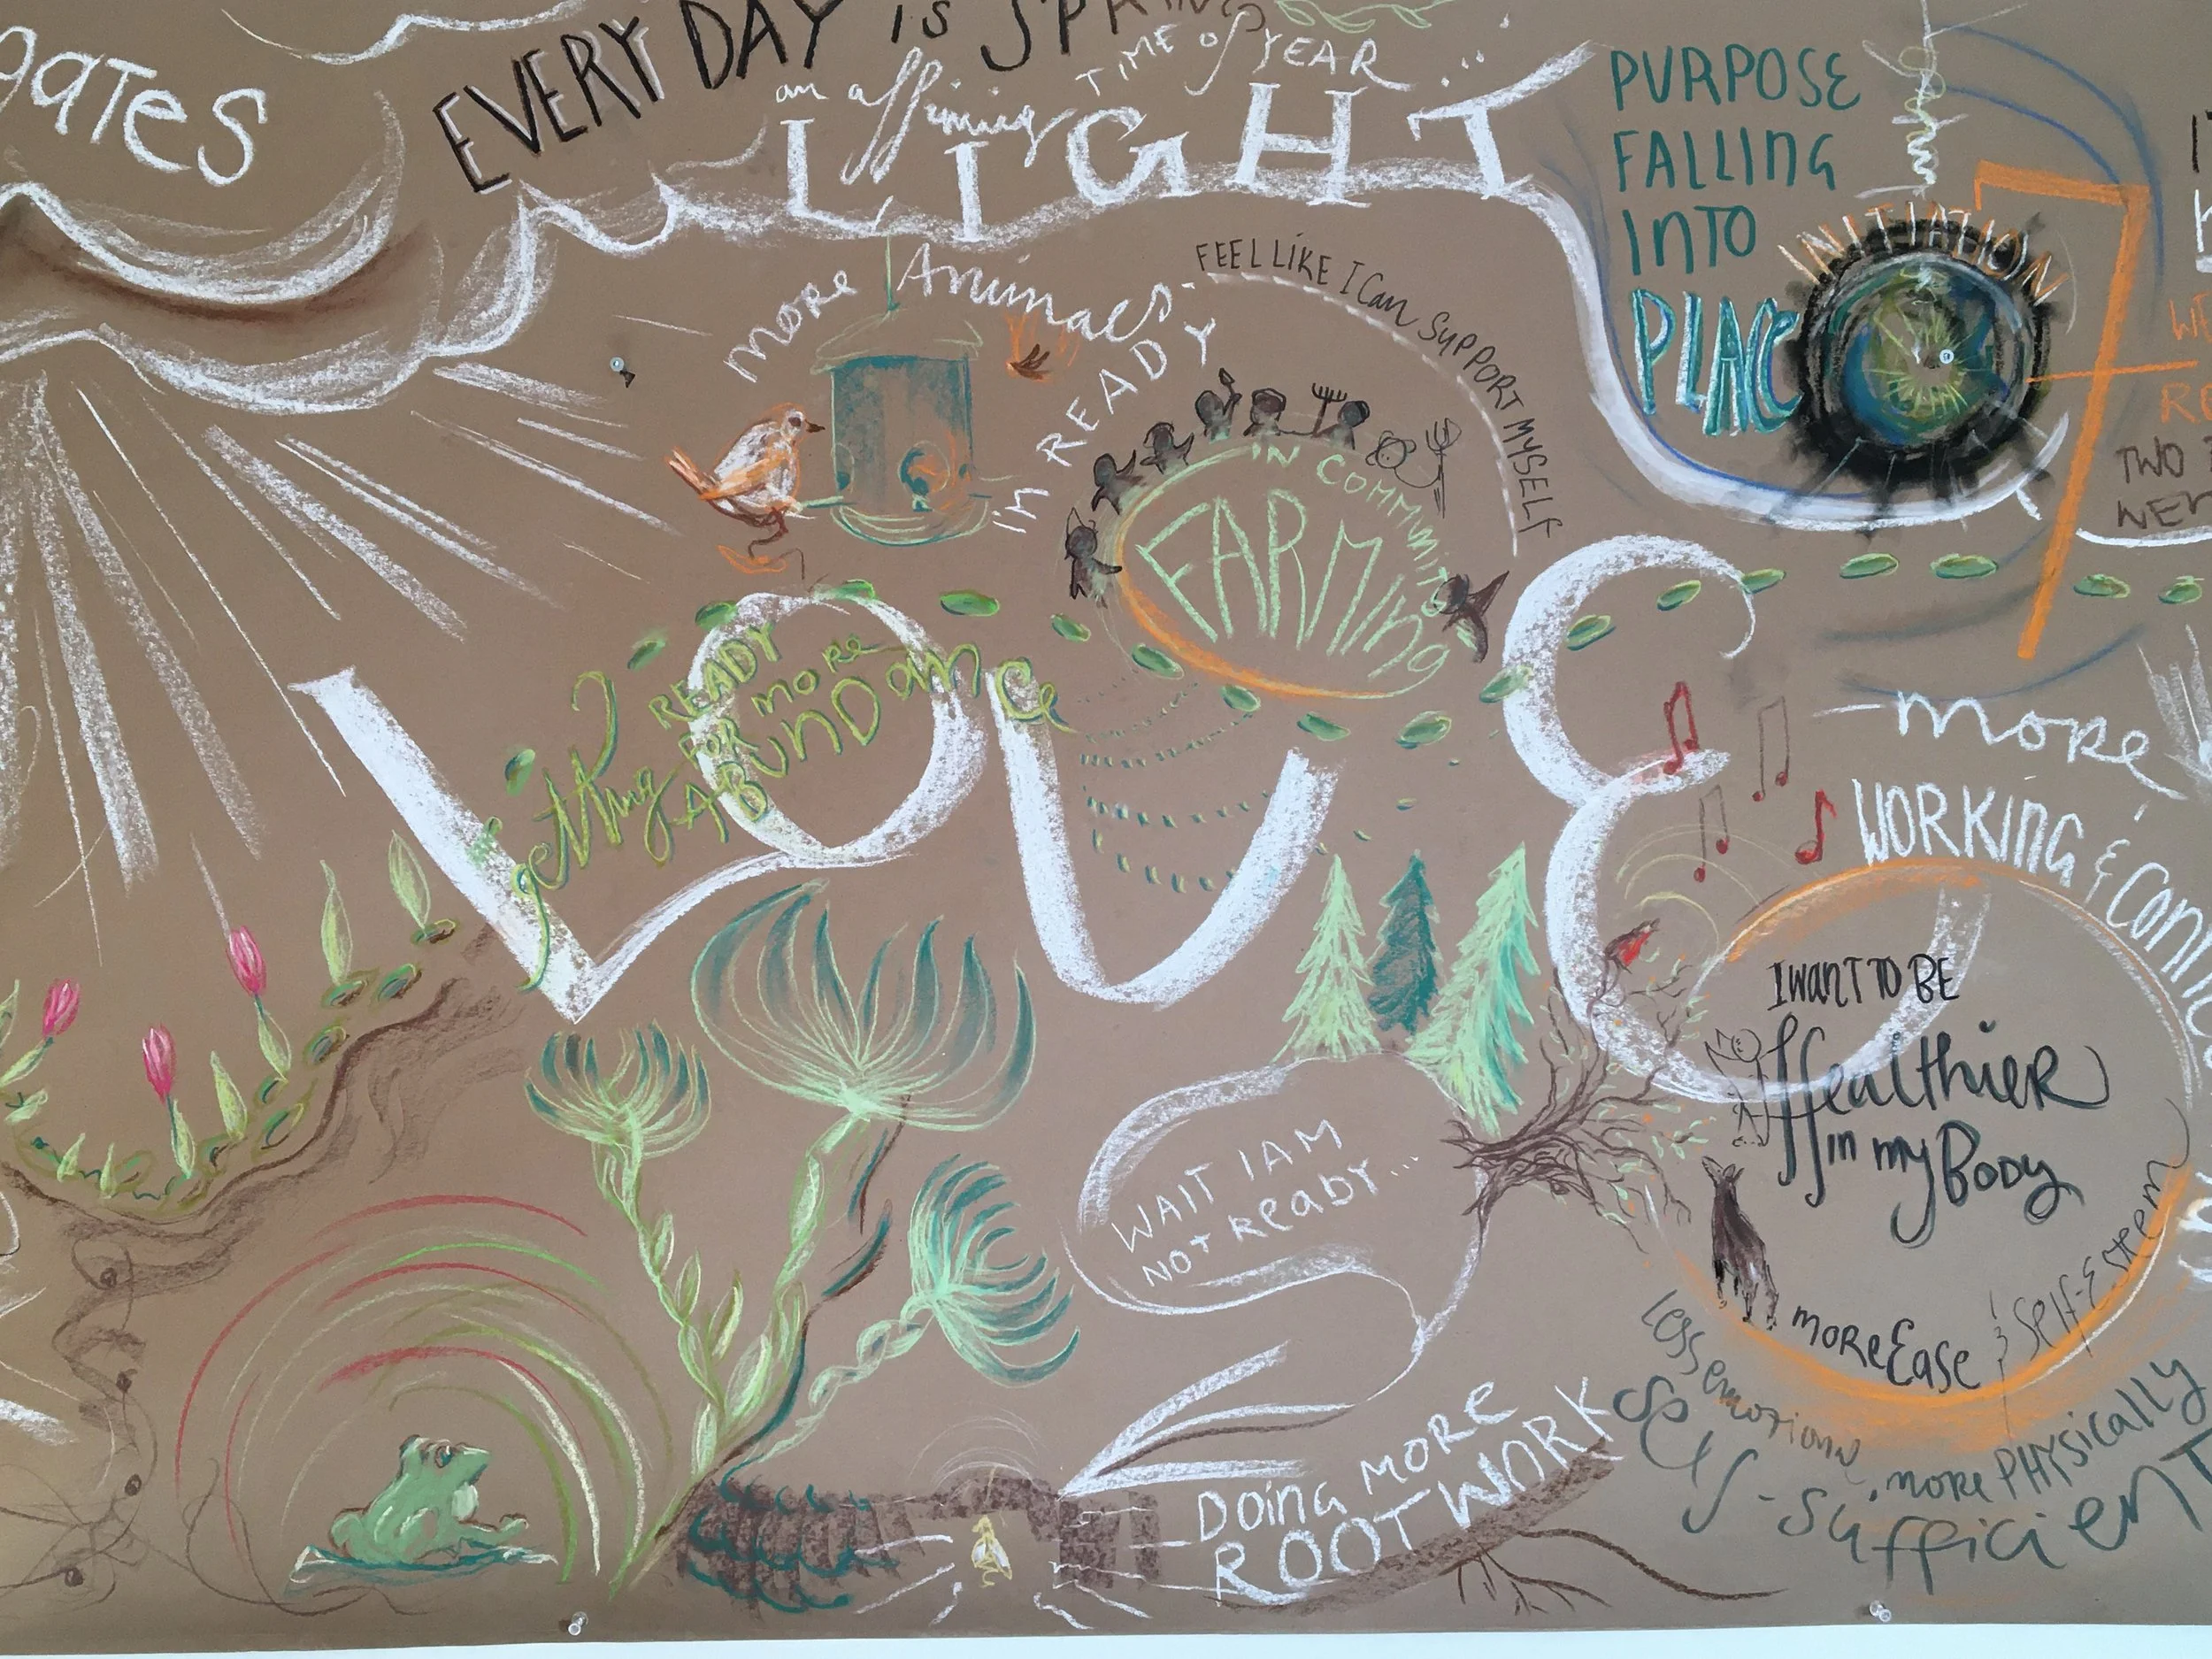 gates
EVERY DAY is SPRING
an affirming TIME of YEAR ...
LIGHT
PURPOSE
FALLING
INTO
PLACE
INITIATION
more Animals
I'm READY
FEEL LIKE I Can SUPPORT MYSELF
IN COMMUNITY
FARMing
TWO
LOVE
getting READY
FOR more
ABUNDance
more
WORKING &
I WANT TO BE
Healthier
in my Body
more Ease & Self-Esteem
less emotional, more PHYsically
Self-sufficient
WAIT I AM
NOT ReaDY...
DOing MORE
ROOT WORK